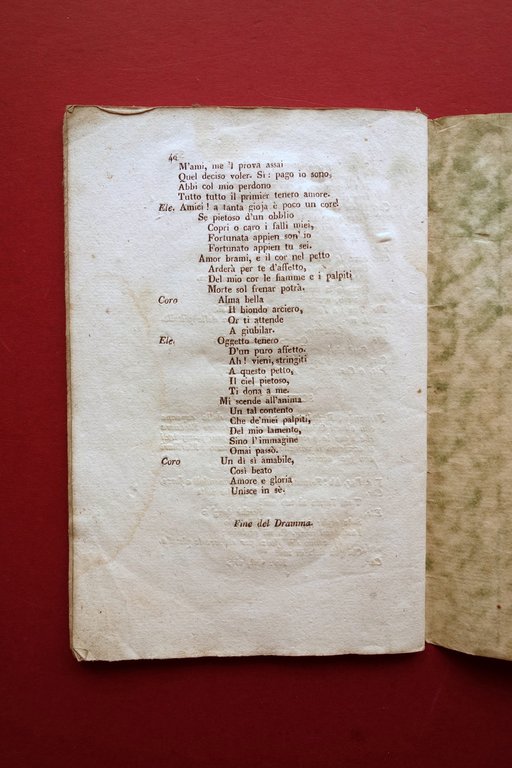 40
M'ami, me 'l prova assai
Quel deciso voler. Sì: pago io sono,
Abbi col mio perdono
Tutto tutto il primier tenero amore.
Ele. Amici! a tanta gioja è poco un core!
Se pietoso d'un obblio
Copri o caro i falli miei,
Fortunata appien son' io
Fortunato appien tu sei.
Amor brami, e il cor nel petto
Arderà per te d'affetto,
Del mio cor le fiamme e i palpiti
Morte sol frenar potrà.
Coro Alma bella
Il biondo arciero,
Or ti attende
A giubilar.
Ele. Oggetto tenero
D'un puro affetto.
Ah! vieni, stringiti
A questo petto,
Il ciel pietoso,
Ti dona a me.
Mi scende all'anima
Un tal contento
Che de'miei palpiti,
Del mio lamento,
Sino l'immagine
Omai passò.
Coro Un dì sì amabile,
Così beato
Amore e gloria
Unisce in sè.
Fine del Dramma.